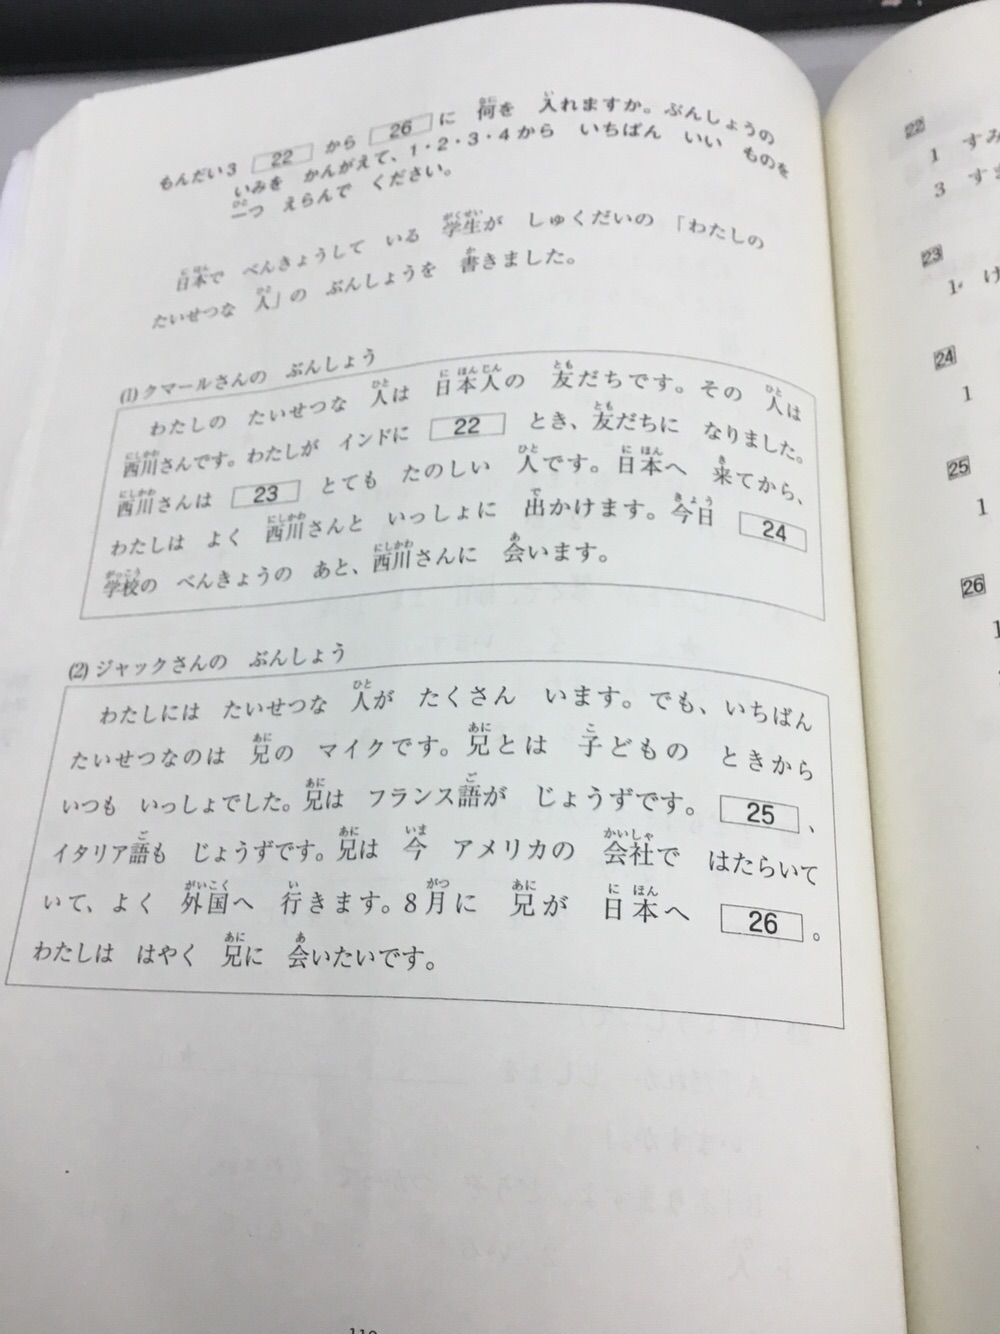 もんだい3 22 から 26 に 何を 入れますか。ぶんしょうの
いみを かんがえて、1・2・3・4から いちばん いい ものを
一つ えらんで ください。
日本で べんきょうして いる 学生が しゅくだいの 「わたしの
たいせつな 人」の ぶんしょうを 書きました。
(1) クマールさんの ぶんしょう
わたしの たいせつな 人は 日本人の 友だちです。その 人は
西川さんです。わたしが インドに 22 とき、友だちに なりました。
西川さんは 23 とても たのしい 人です。日本へ 来てから、
わたしは よく 西川さんと いっしょに 出かけます。今日 24
学校の べんきょうの あと、西川さんに 会います。
(2) ジャックさんの ぶんしょう
わたしには たいせつな 人が たくさん います。でも、いちばん
たいせつなのは 兄の マイクです。兄とは 子どもの ときから
いつも いっしょでした。兄は フランス語が じょうずです。 25 、
イタリア語も じょうずです。兄は 今 アメリカの 会社で はたらいて
いて、よく 外国へ 行きます。8月に 兄が 日本へ 26 。
わたしは はやく 兄に 会いたいです。
22
1 すみ
3 す
23
1 け
24
1
25
1
26
1